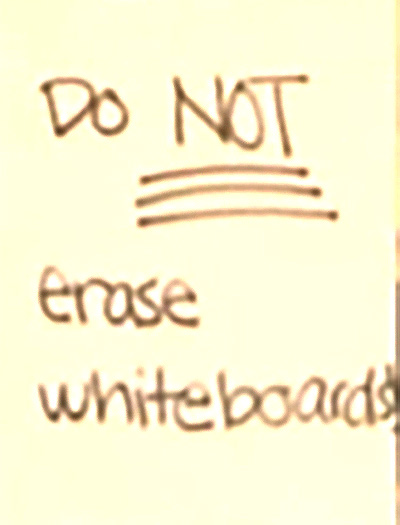 Do NOT
erase
whiteboards!